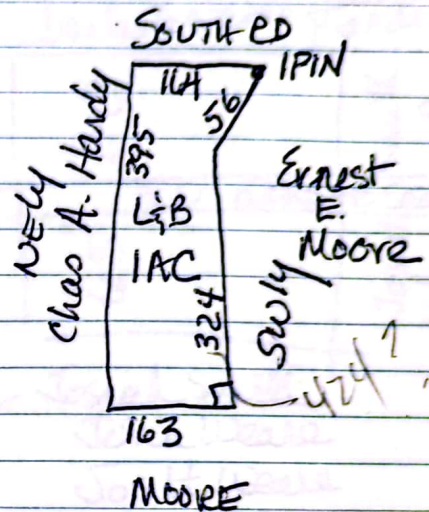 SOUTH RD
IPIN
114
56
NELY
Chas A. Hardy
395
L&B
1AC
Ernest
E.
Moore
324
SWly
424?
163
MOORE